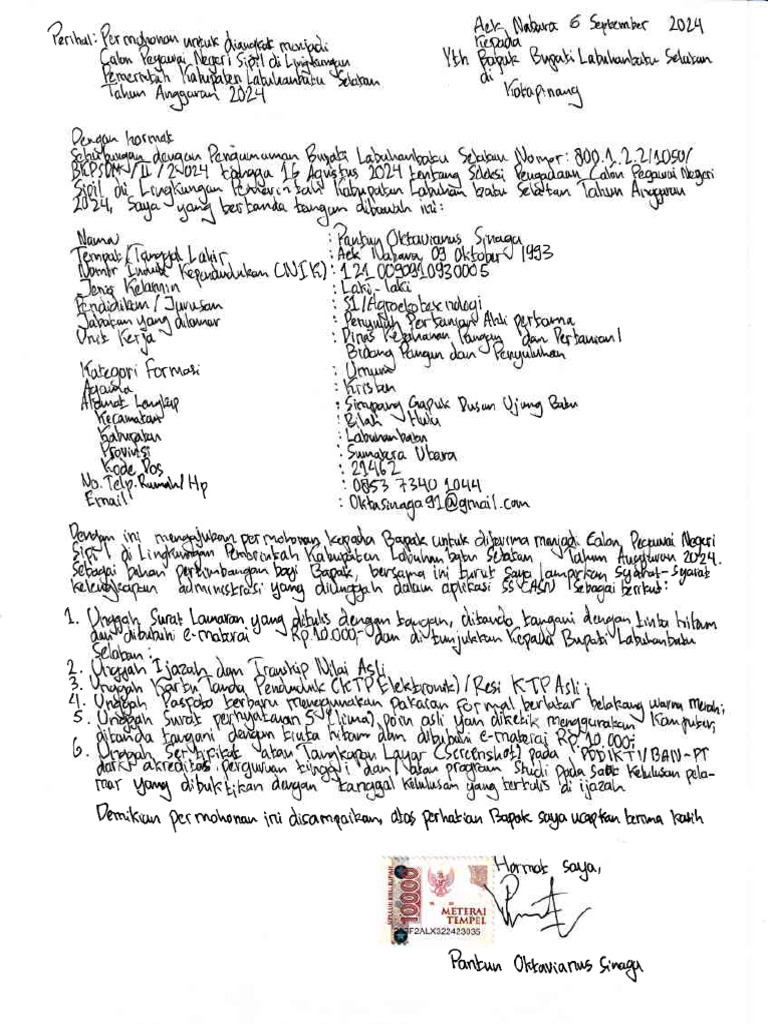 Aek Nabara 6 September 2024
Perihal: Permohonan untuk diangkat menjadi
Calon Pegawai Negeri Sipil di Lingkungan
Pemerintah Kabupaten Labuhanbatu Selatan
Tahun Anggaran 2024
Kepada
Yth Bapak Bupati Labuhanbatu Selatan
di
Kotapinang
Dengan hormat
Sehubungan dengan Pengumuman Bupati Labuhanbatu Selatan Nomor: 800.1.2.2/1050/
BKPSDM/II/2024 tanggal 16 Agustus 2024 tentang Seleksi Pengadaan Calon Pegawai Negeri
Sipil di Lingkungan Pemerintah Kabupaten Labuhan batu Selatan Tahun Anggaran
2024, Saya yang bertanda tangan dibawah ini:
Nama : Pantun Oktavianus Sinaga
Tempat/Tanggal Lahir : Aek Nabara 09 Oktober 1993
Nomor Induk Kependudukan (NIK) : 121 0090910930005
Jenis Kelamin : Laki-laki
Pendidikan/Jurusan : S1/Agroekoteknologi
Jabatan yang dilamar : Penyuluh Pertanian Ahli pertama
Unit Kerja : Dinas Ketahanan Pangan dan Pertanian/
Bidang Pangan dan Penyuluhan
Kategori Formasi : Umum
Agama : Kristen
Alamat Lengkap : Simpang Gapuk Dusun Ujung Batu
Kecamatan : Bilah Hulu
Kabupaten : Labuhanbatu
Provinsi : Sumatera Utara
Kode Pos : 21462
No. Telp. Rumah/Hp : 0853 7340 1044
Email : Oktasinaga91@gmail.com
Dengan ini mengajukan permohonan kepada Bapak untuk diterima menjadi Calon Pegawai Negeri
Sipil di Lingkungan Pemerintah Kabupaten Labuhan batu Selatan Tahun Anggaran 2024.
Sebagai bahan pertimbangan bagi Bapak, bersama ini turut saya lampirkan syarat-syarat
kelengkapan administrasi yang diunggah dalam aplikasi SSCASN sebagai berikut:
1. Unggah Surat Lamaran yang ditulis dengan tangan, ditanda tangani dengan tinta hitam
dan dibubuhi e-materai Rp.10.000,- dan ditunjukkan Kepada Bupati Labuhanbatu
Selatan;
2. Unggah Ijazah dan Transkip Nilai Asli
3. Unggah Kartu Tanda Penduduk (KTP Elektronik)/Resi KTP Asli;
4. Unggah Pasfoto terbaru menggunakan pakaian formal berlatar belakang warna merah;
5. Unggah Surat pernyataan 5 (lima) poin asli yan diketik menggunakan Komputer,
ditanda tangani dengan tinta hitam dan dibubuhi e-materai Rp.10.000;
6. Unggah Sertifikat atau Tangkapan Layar (Screenshot) pada PDDIKTI/BAN-PT
dari akreditasi perguruan tinggi dan/atau program Studi pada Saat Kelulusan pela-
mar yang dibuktikan dengan tanggal kelulusan yang tertulis di ijazah
Demikian permohonan ini disampaikan, atas perhatian Bapak saya ucapkan terima kasih
Hormat saya,
10000
METERAI
TEMPEL
F2ALX322423035
Pantun Oktavianus Sinaga